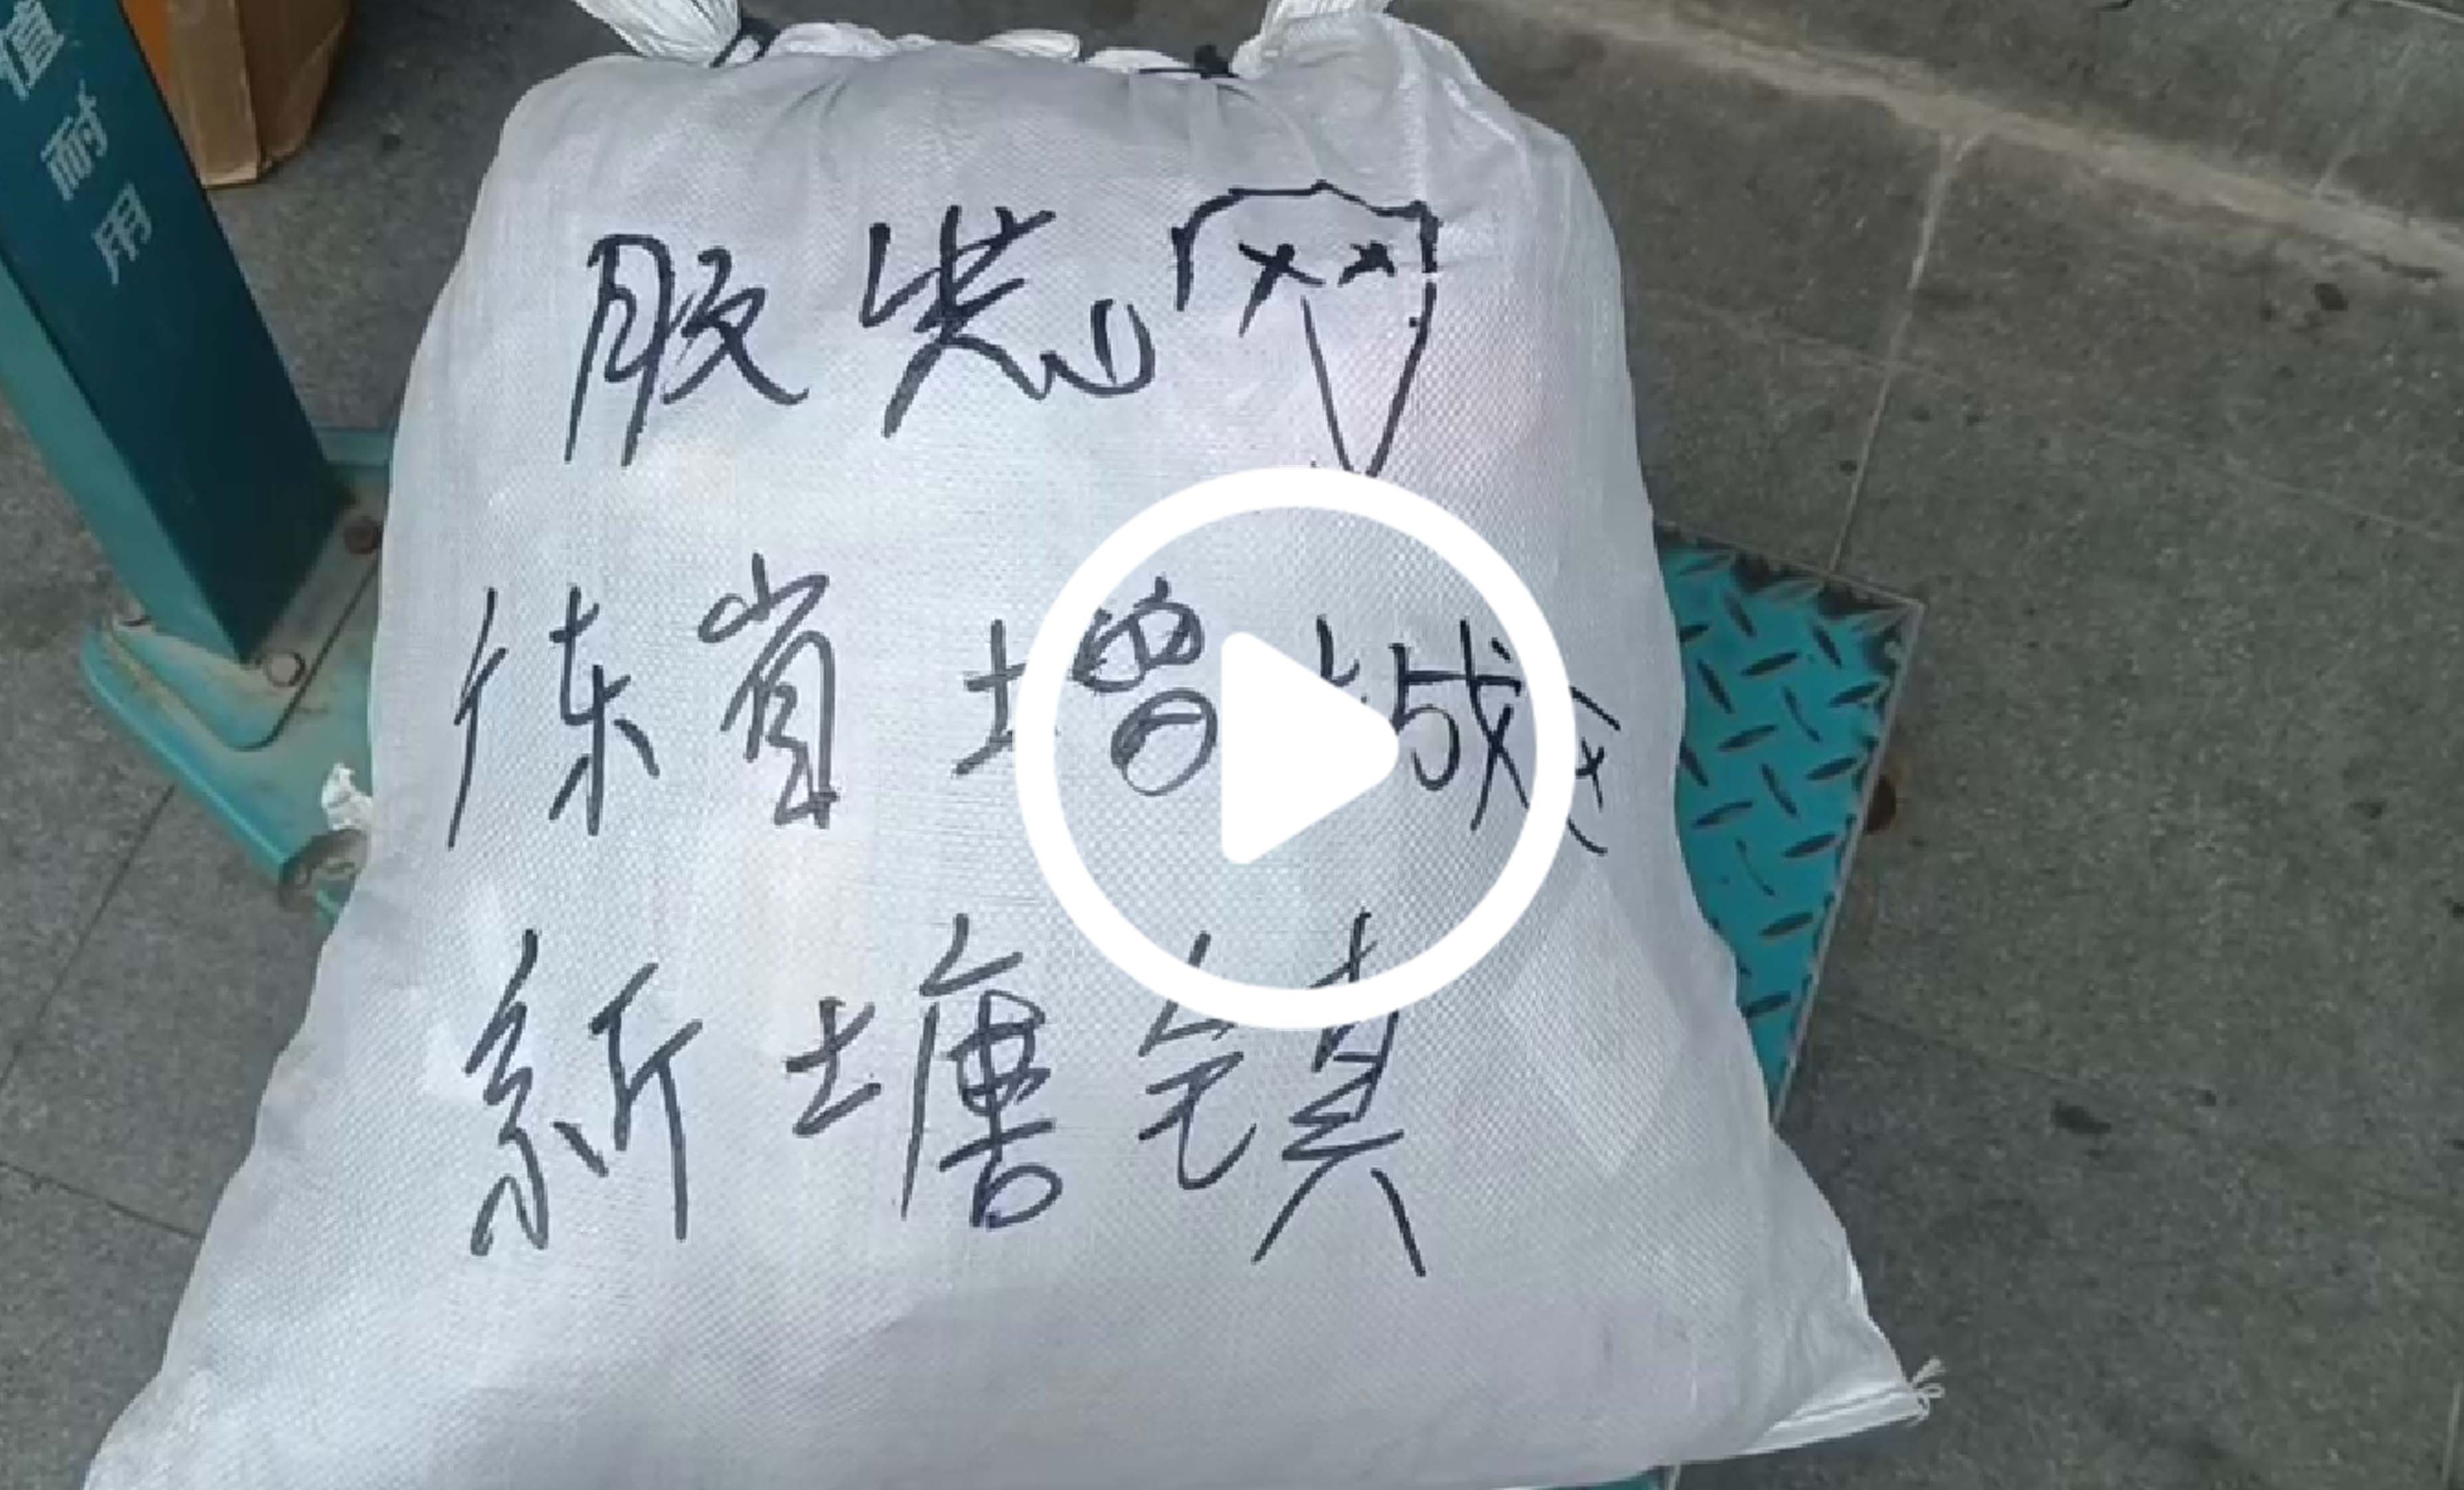 值耐用
服装网
东省增城
新塘镇